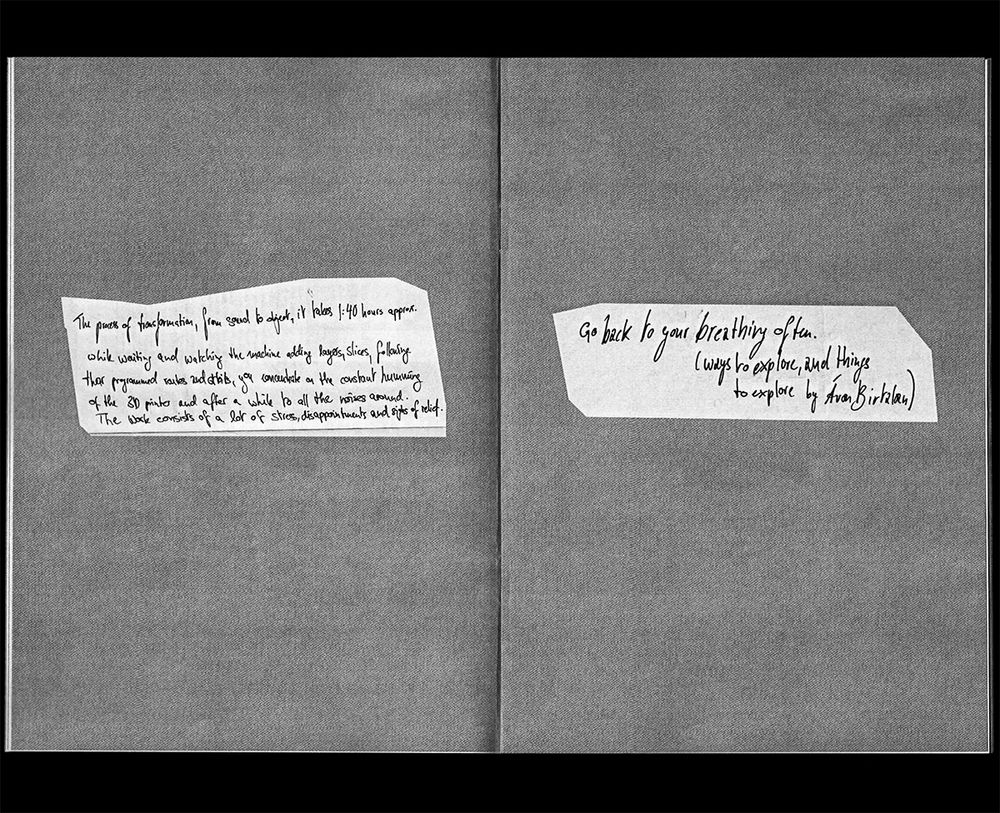 The process of transformation, from sound to object, it takes 1:40 hours approx.
while waiting and watching the machine adding layers, slices, following
their programmed routes and orbits, you concentrate on the constant humming
of the 3D printer and after a while to all the noises around.
The work consists of a lot of stress, disappointments and sighs of relief.
Go back to your breathing often.
(ways to explore, and things
to explore by Áron Birtalan)